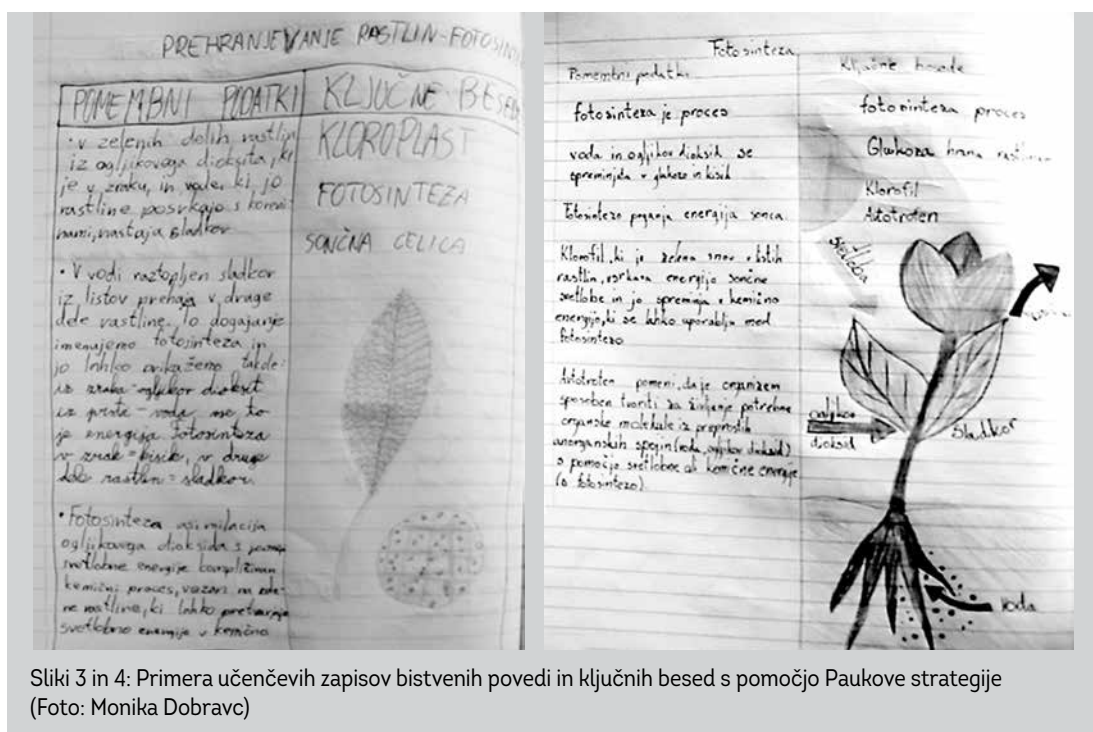 PREHRANJEVANJE RASTLIN-FOTOSIN
POMEMBNI PODATKI
KLJUČNE BESED
• v zelenih delih rastlin
iz ogljikovega dioksita, ki
je v zraku, in vode, ki jo
rastline posrkajo s koreni-
nami, nastaja sladkor
• V vodi raztopljen sladkor
iz listov prehaja v druge
dele rastline. To dogajanje
imenujemo fotosinteza in
jo lahko prikažemo takole:
iz zraka = ogljikov dioksit
iz prsti = voda, to
je energija. Fotosinteza
v zrak = kisik, v druge
dele rastlin = sladkor.
• Fotosinteza asimilacija
ogljikovega dioksida s
svetlobne energije kompliciran
kemični proces, vezan na zele-
ne rastline, ki lahko pretvarja
svetlobno energijo v kemično
KLOROPLAST
FOTOSINTEZA
SONČNA CELICA
Fotosinteza
Pomembni podatki
fotosinteza je proces
voda in ogljikov dioksid se
spreminjata v glukozo in kisik
Fotosintezo poganja energija sonca.
Klorofil, ki je zelena snov v listih
rastlin, vsrkava energijo sončne
svetlobe in jo spreminja v kemično
energijo, ki se lahko uporablja med
fotosintezo.
Avtotrofen pomeni, da je organizem
sposoben tvoriti za življenje potrebne
organske molekule iz preprostih
anorganskih spojin (voda, ogljikov dioksid)
s pomočjo svetlobne ali kemične energije
(s fotosintezo).
Ključne besede
fotosinteza proces
Glukoza hrana rastlinam
Klorofil
Avtotrofen
svetloba
ogljikov
dioksid
sladkor
voda
Sliki 3 in 4: Primera učenčevih zapisov bistvenih povedi in ključnih besed s pomočjo Paukove strategije
(Foto: Monika Dobravc)